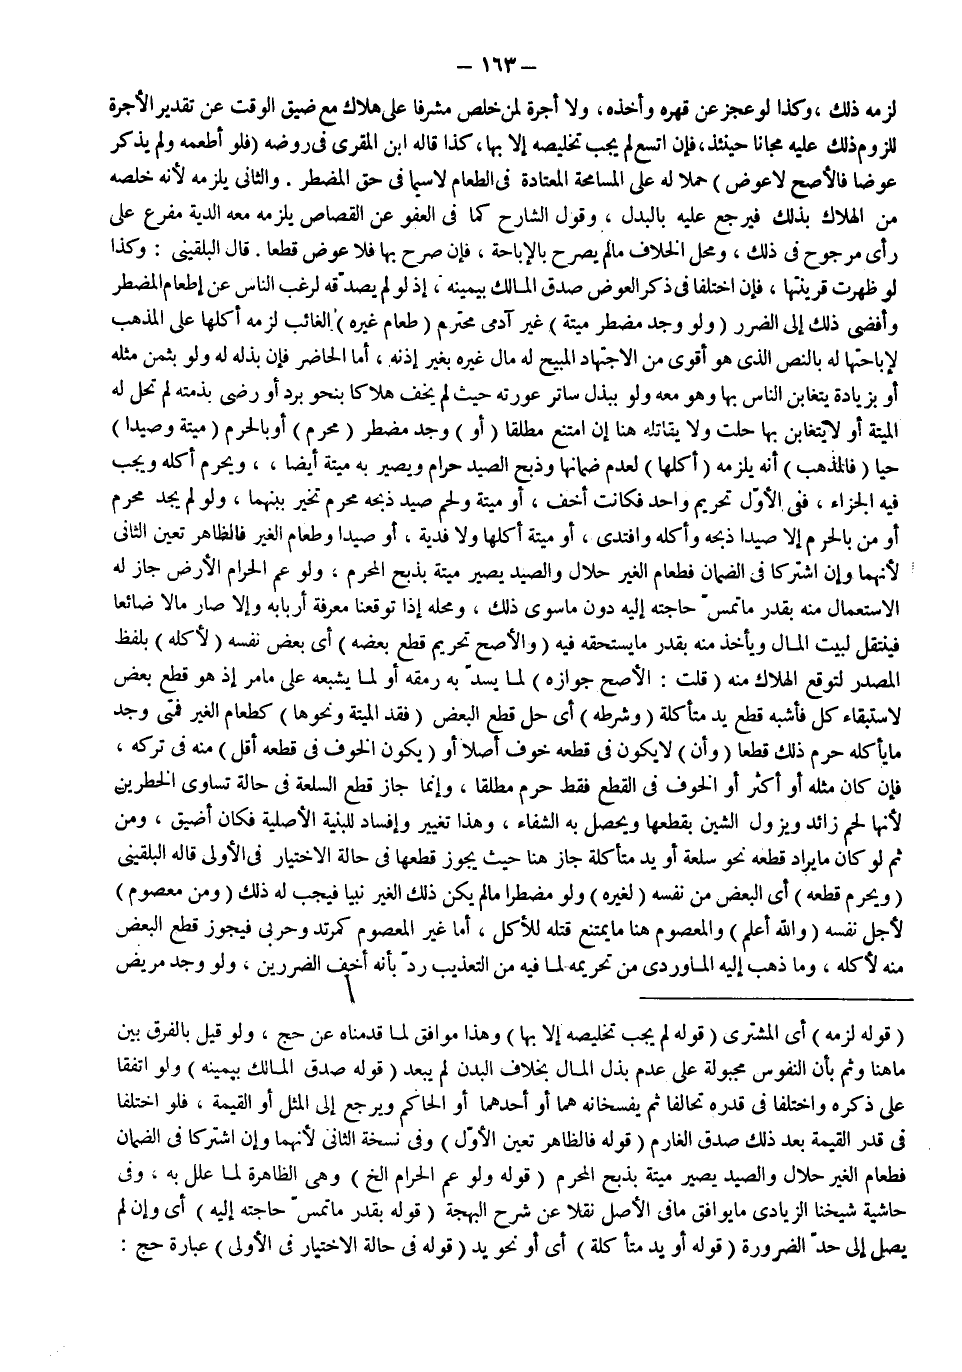 – ١٦٣ –
لزمه ذلك ، وكذا لو عجز عن قهره وأخذه ، ولا أجرة لمن خلص مشرفا على هلاك مع ضيق الوقت عن تقدير الأجرة
للزوم ذلك عليه مجانا حينئذ ، فإن اتسع لم يجب تخليصه إلا بها ، كذا قاله ابن المقرى فى روضه ( فلو أطعمه ولم يذكر
عوضا فالأصح لا عوض ) حملا له على المسامحة المعتادة فى الطعام لاسيما فى حق المضطر . والثانى يلزمه لأنه خلصه
من الهلاك بذلك فيرجع عليه بالبدل ، وقول الشارح كما فى العفو عن القصاص يلزمه معه الدية مفرع على
رأى مرجوح فى ذلك ، ومحل الخلاف مالم يصرح بالإباحة ، فإن صرح بها فلا عوض قطعا . قال البلقينى : وكذا
لو ظهرت قرينتها ، فإن اختلفا فى ذكر العوض صدق المالك بيمينه ، إذ لو لم يصدّقه لرغب الناس عن إطعام المضطر
وأفضى ذلك إلى الضرر ( ولو وجد مضطر ميتة ) غير آدمى محترم ( طعام غيره ) الغائب لزمه أكلها على المذهب
لإباحتها له بالنص الذى هو أقوى من الاجتهاد المبيح له مال غيره بغير إذنه ، أما الحاضر فإن بذله له ولو بثمن مثله
أو بزيادة يتغابن الناس بها وهو معه ولو ببذل ساتر عورته حيث لم يخف هلاكا بنحو برد أو رضى بذمته لم تحل له
الميتة أو لا يتغابن بها حلت ولا يقاتله هنا إن امتنع مطلقا ( أو ) وجد مضطر ( محرم ) أو بالحرم ( ميتة وصيدا )
حيا ( فالمذهب ) أنه يلزمه ( أكلها ) لعدم ضمانها وذبح الصيد حرام ويصير به ميتة أيضا ، ، ويحرم أكله ويجب
فيه الجزاء ، ففى الأوّل تحريم واحد فكانت أخف ، أو ميتة ولحم صيد ذبحه محرم تخير بينهما ، ولو لم يجد محرم
أو من بالحرم إلا صيدا ذبحه وأكله وافتدى ، أو ميتة أكلها ولا فدية ، أو صيدا وطعام الغير فالظاهر تعين الثانى
لأنهما وإن اشتركا فى الضمان فطعام الغير حلال والصيد يصير ميتة بذبح المحرم ، ولو عم الحرام الأرض جاز له
الاستعمال منه بقدر ماتمسّ حاجته إليه دون ماسوى ذلك ، ومحله إذا توقعنا معرفة أربابه وإلا صار مالا ضائعا
فينتقل لبيت المال ويأخذ منه بقدر مايستحقه فيه ( والأصح تحريم قطع بعضه ) أى بعض نفسه ( لأكله ) بلفظ
المصدر لتوقع الهلاك منه ( قلت : الأصح جوازه ) لما يسدّ به رمقه أو لما يشبعه على مامر إذ هو قطع بعض
لاستبقاء كل فأشبه قطع يد متأكلة ( وشرطه ) أى حل قطع البعض ( فقد الميتة ونحوها ) كطعام الغير فمتى وجد
مايأكله حرم ذلك قطعا ( وأن ) لايكون فى قطعه خوف أصلا أو ( يكون الخوف فى قطعه أقل ) منه فى تركه ،
فإن كان مثله أو أكثر أو الخوف فى القطع فقط حرم مطلقا ، وإنما جاز قطع السلعة فى حالة تساوى الخطرين
لأنها لحم زائد ويزول الشين بقطعها ويحصل به الشفاء ، وهذا تغيير وإفساد للبنية الأصلية فكان أضيق ، ومن
ثم لو كان مايراد قطعه نحو سلعة أو يد متأكلة جاز هنا حيث يجوز قطعها فى حالة الاختيار فى الأولى قاله البلقينى
( ويحرم قطعه ) أى البعض من نفسه ( لغيره ) ولو مضطرا مالم يكن ذلك الغير نبيا فيجب له ذلك ( ومن معصوم )
لأجل نفسه ( والله أعلم ) والمعصوم هنا مايمتنع قتله للأكل ، أما غير المعصوم كمرتد وحربى فيجوز قطع البعض
منه لأكله ، وما ذهب إليه الماوردى من تحريمه لما فيه من التعذيب ردّ بأنه أخف الضررين ، ولو وجد مريض
( قوله لزمه ) أى المشترى ( قوله لم يجب تخليصه إلا بها ) وهذا موافق لما قدمناه عن حج ، ولو قيل بالفرق بين
ماهنا وثم بأن النفوس مجبولة على عدم بذل المال بخلاف البدن لم يبعد ( قوله صدق المالك بيمينه ) ولو اتفقا
على ذكره واختلفا فى قدره تحالفا ثم يفسخانه هما أو أحدهما أو الحاكم ويرجع إلى المثل أو القيمة ، فلو اختلفا
فى قدر القيمة بعد ذلك صدق الغارم ( قوله فالظاهر تعين الأوّل ) وفى نسخة الثانى لأنهما وإن اشتركا فى الضمان
فطعام الغير حلال والصيد يصير ميتة بذبح المحرم ( قوله ولو عم الحرام الخ ) وهى الظاهرة لما علل به ، وفى
حاشية شيخنا الزيادى مايوافق مافى الأصل نقلا عن شرح البهجة ( قوله بقدر ماتمسّ حاجته إليه ) أى وإن لم
يصل إلى حدّ الضرورة ( قوله أو يد متأكلة ) أى أو نحو يد ( قوله فى حالة الاختيار فى الأولى ) عبارة حج :